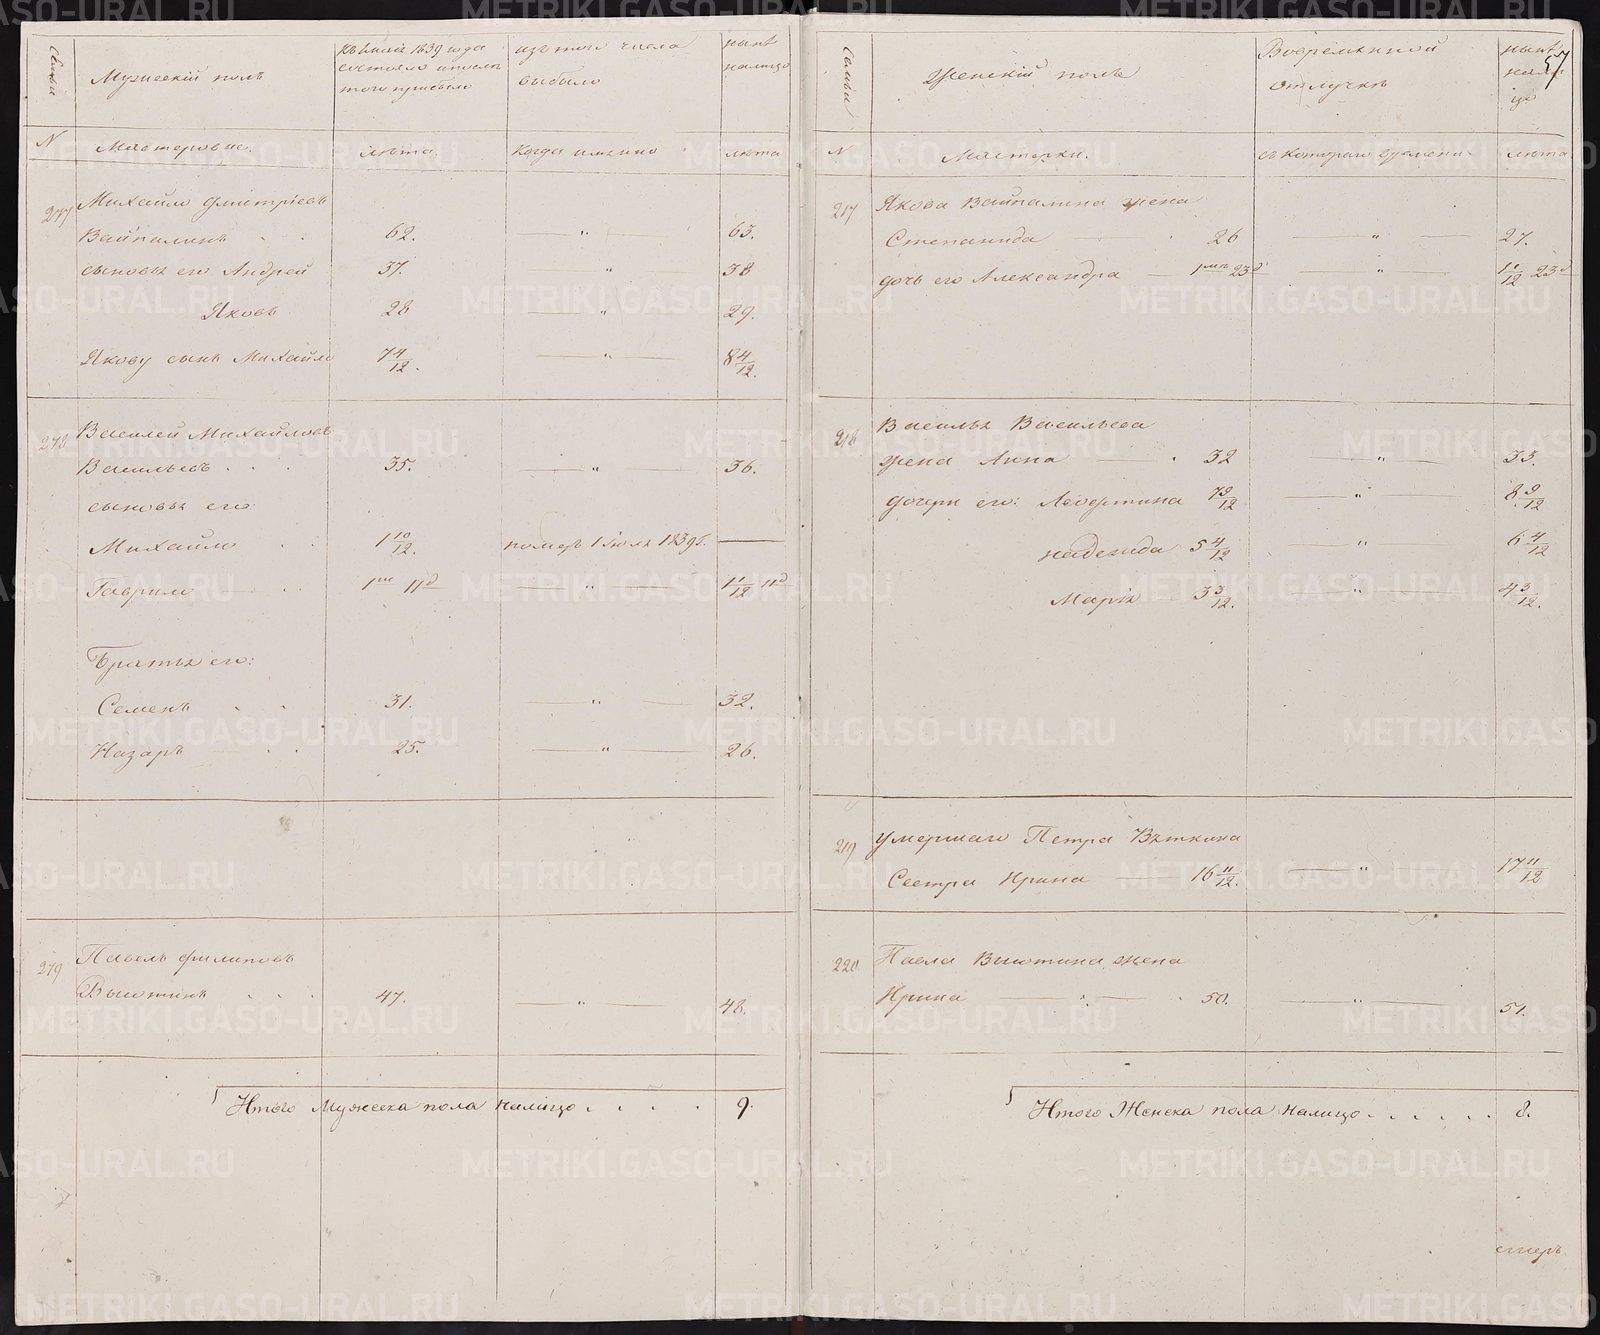 Семьи
Мужескій полъ
Къ 1839 года
состояло и после
того прибыло
изъ того числа
выбыло
ныне
налицо
N
Мастеровые.
лѣта.
Когда именно
лѣта
277
Михайло Дмитріевъ
Вайпалинъ 62. " 63.
сыновья его Андрей 37. " 38
Яковъ 28 " 29.
Якову сынъ Михайло 7 4/12. " 8 4/12.
278
Василей Михайловъ
Васильевъ 35. " 36.
сыновья его:
Михайло 1 10/12. померъ 1 Июля 1839г.
Гаврило 1м 11д " 1 1/12 11д
Братья его:
Семенъ 31. " 32.
Назаръ 25. " 26.
279
Павелъ Филиповъ
Вьютинъ 47. " 48.
Итого Мужеска пола налицо . . . . 9.
57
Семьи
Женскій полъ
Во временной
отлучке
ныне
нали
цо
N
Мастерки.
съ котораго времени
лѣта
217
Якова Вайпалина жена
Степанида 26 " 27.
дочь его Александра 1мц 23д " 1 1/12 23д
218
Василья Васильева
жена Анна 32 " 33.
дочери его: Авдотина 7 9/12 " 8 9/12
надежда 5 4/12 " 6 4/12
Марія 3 3/12. " 4 3/12.
219
Умершаго Петра Вяткина
Сестра Ирина 16 11/12. " 17 11/12
220
Павла Вьютина жена
Ирина " 50. " 51.
Итого Женска пола налицо . . . . . . 8.
METRIKI.GASO-URAL.RU